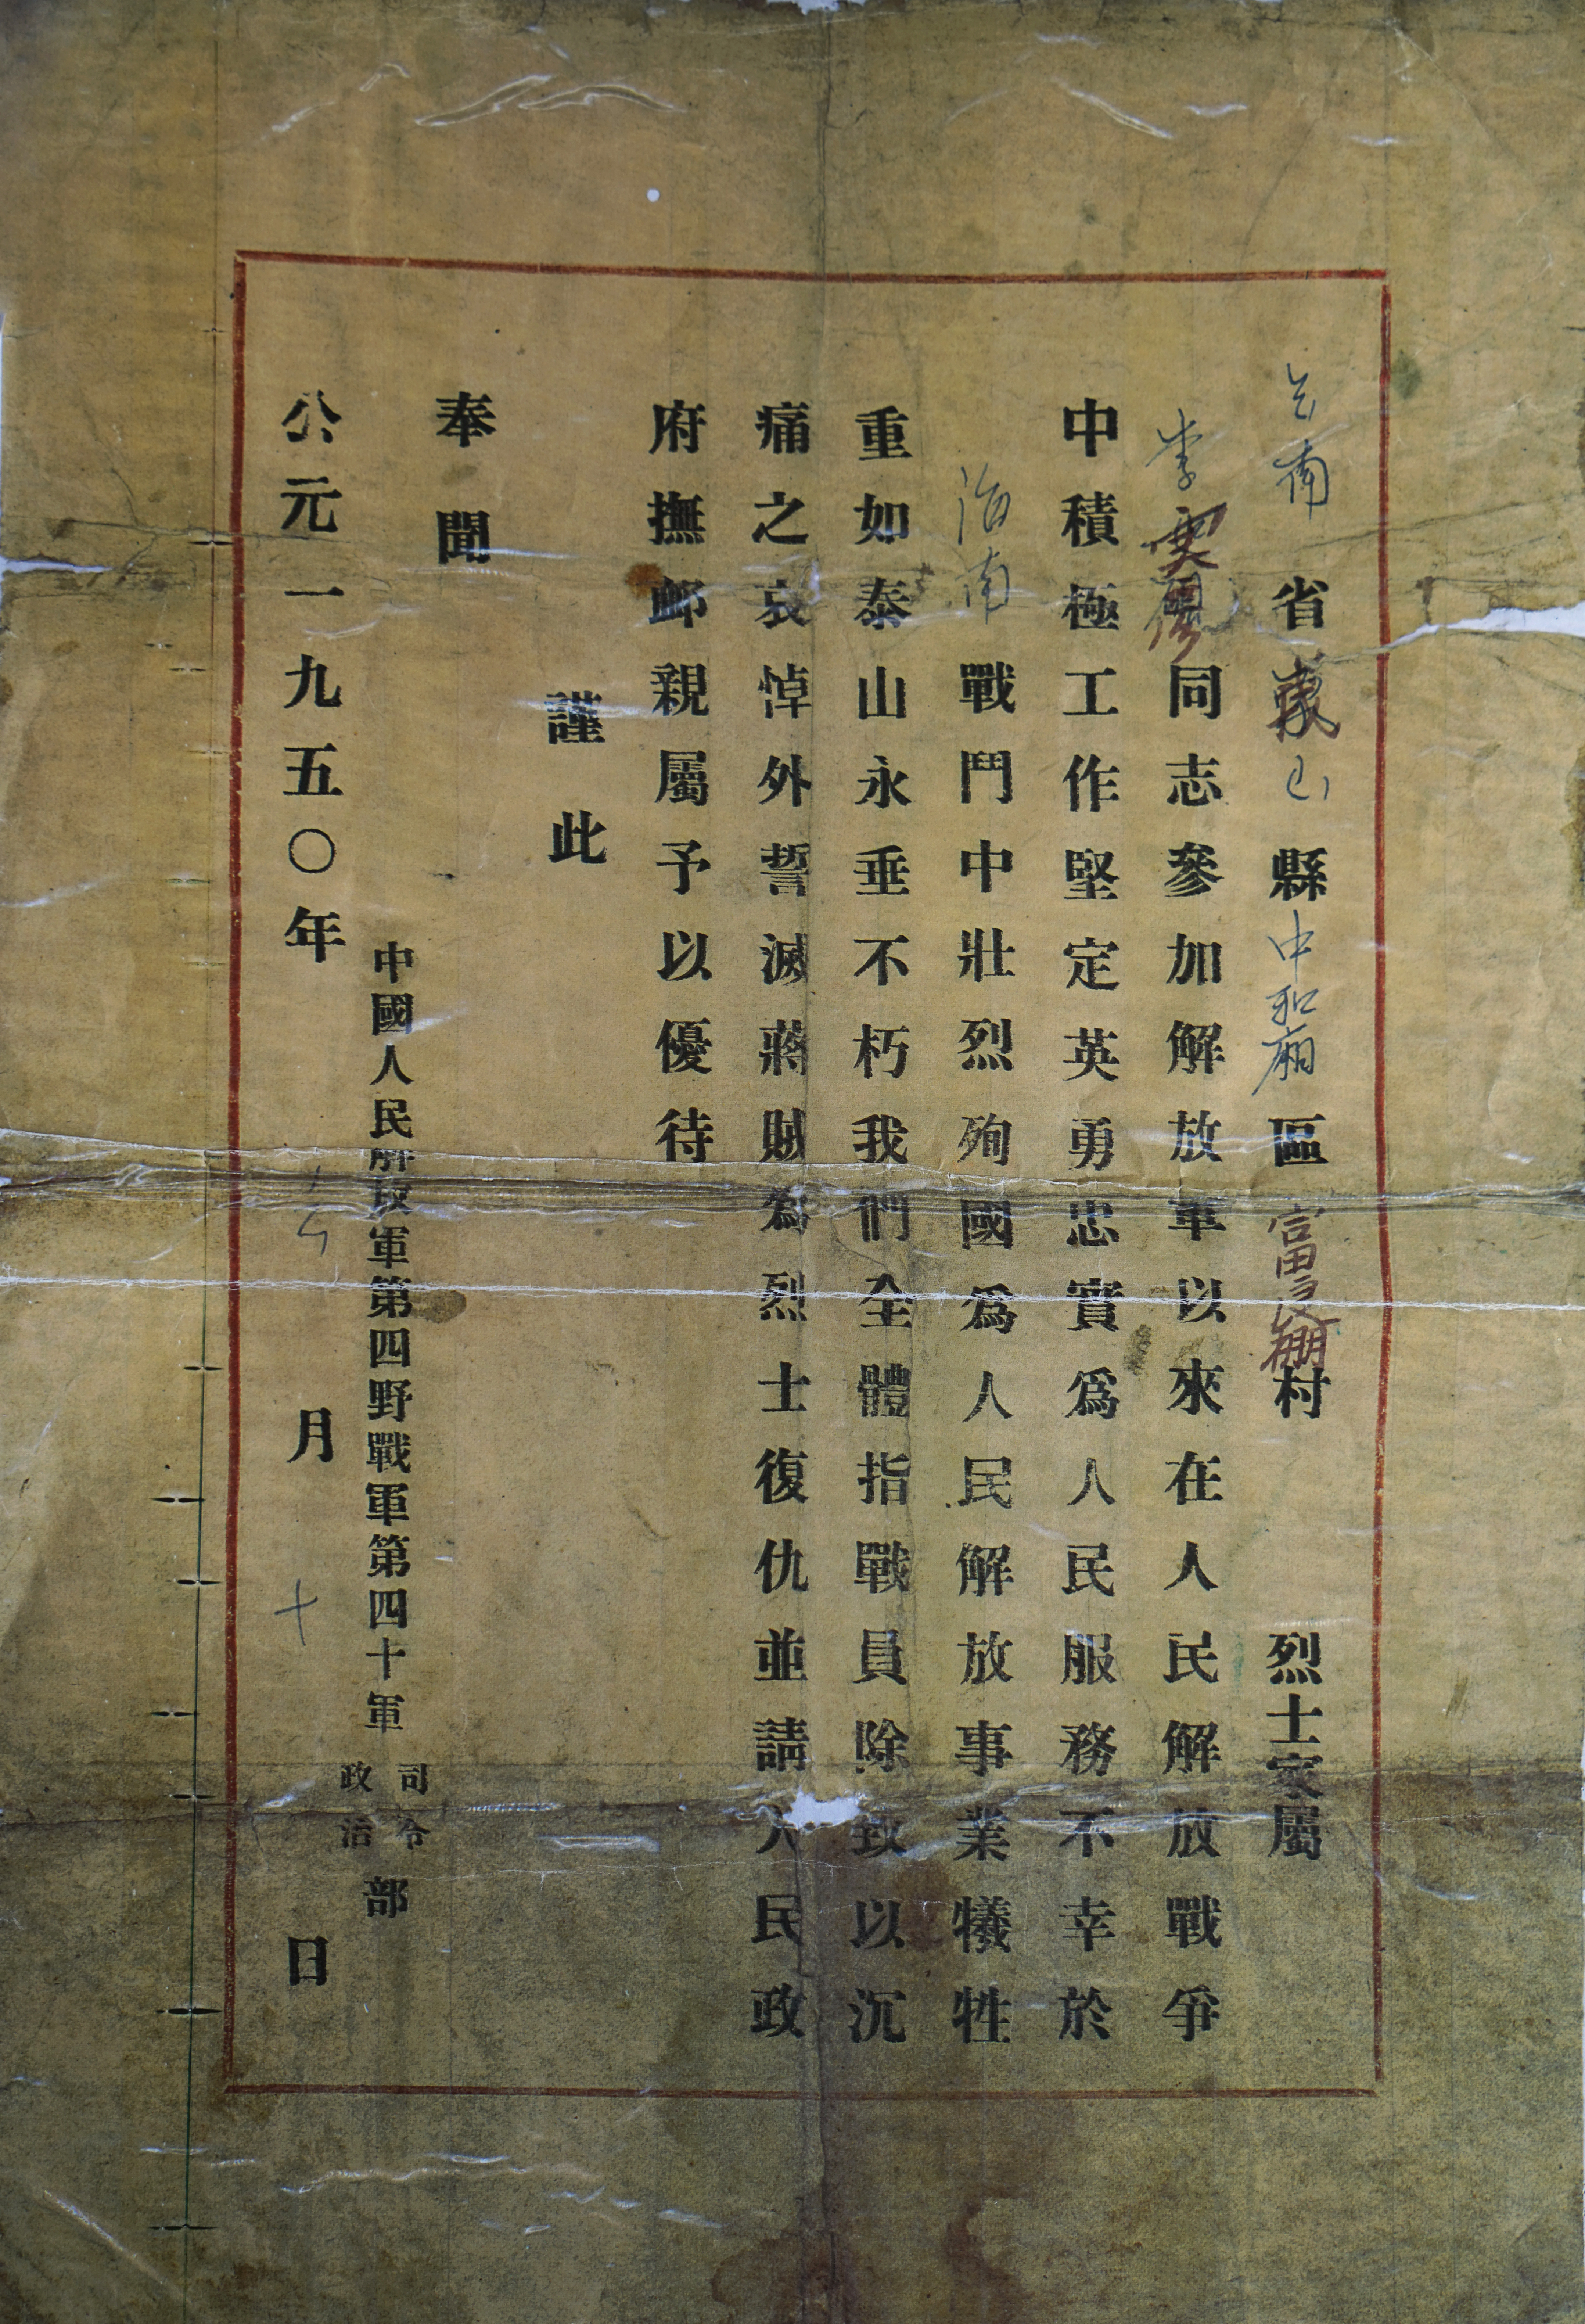 云南省山縣中和廂區富村 烈士家屬
李同志參加解放軍以來在人民解放戰爭
中積極工作堅定英勇忠實爲人民服務不幸於
海南 戰鬥中壯烈殉國爲人民解放事業犧牲
重如泰山永垂不朽我們全體指戰員除致以沉
痛之哀悼外誓滅蔣賊爲烈士復仇並請人民政
府撫卹親屬予以優待
謹此
奉聞
中國人民解放軍第四野戰軍第四十軍 司令 政治 部
公元一九五〇年 月 十 日